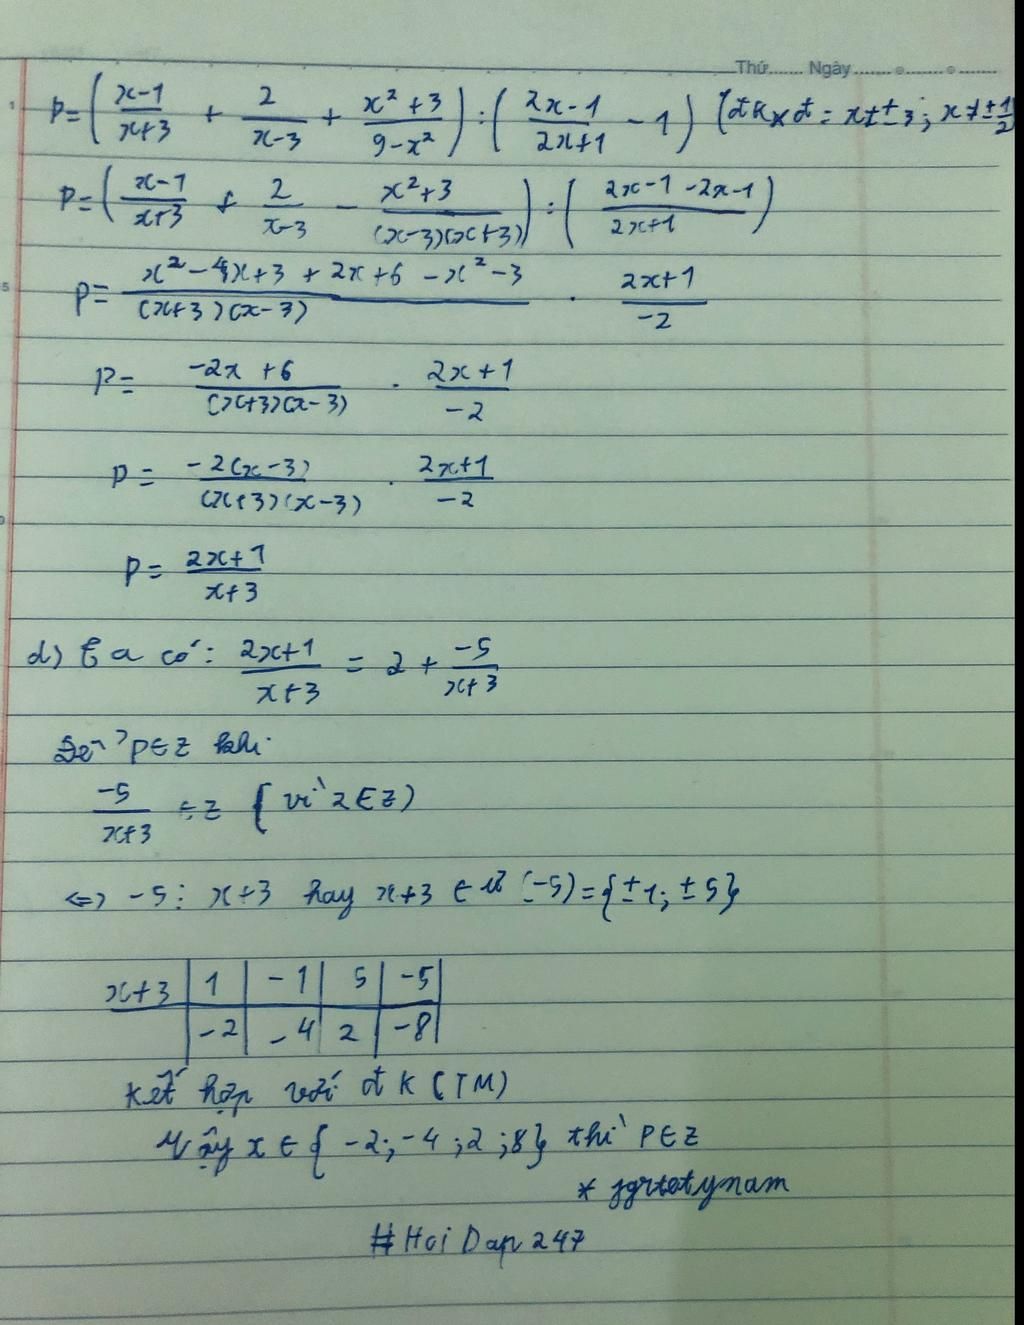 Thứ....... Ngày........................
P=((x-1)/(x+3) + 2/(x-3) + (x²+3)/(9-x²)) : ((2x-1)/(2x+1) - 1) (đkxđ = x≠±3; x≠±1/2)
P=((x-1)/(x+3) + 2/(x-3) - (x²+3)/((x-3)(x+3))) : ((2x-1-2x-1)/(2x+1))
P= (x²-4x+3+2x+6-x²-3)/((x+3)(x-3)) . (2x+1)/(-2)
P= (-2x+6)/((x+3)(x-3)) . (2x+1)/(-2)
P= (-2(x-3))/((x+3)(x-3)) . (2x+1)/(-2)
P= (2x+1)/(x+3)
d) Ta có: (2x+1)/(x+3) = 2 + (-5)/(x+3)
Để P∈Z khi
(-5)/(x+3) ∈Z (vì 2∈Z)
<=> -5 ⋮ x+3 hay x+3 ∈ Ư(-5)={±1; ±5}
x+3 | 1 | -1 | 5 | -5
| -2 | -4 | 2 | -8
Kết hợp với đk (TM)
Vậy x ∈ { -2; -4; 2; 8} thì P∈Z
* jgrtetynam
#Hoi Dap 247